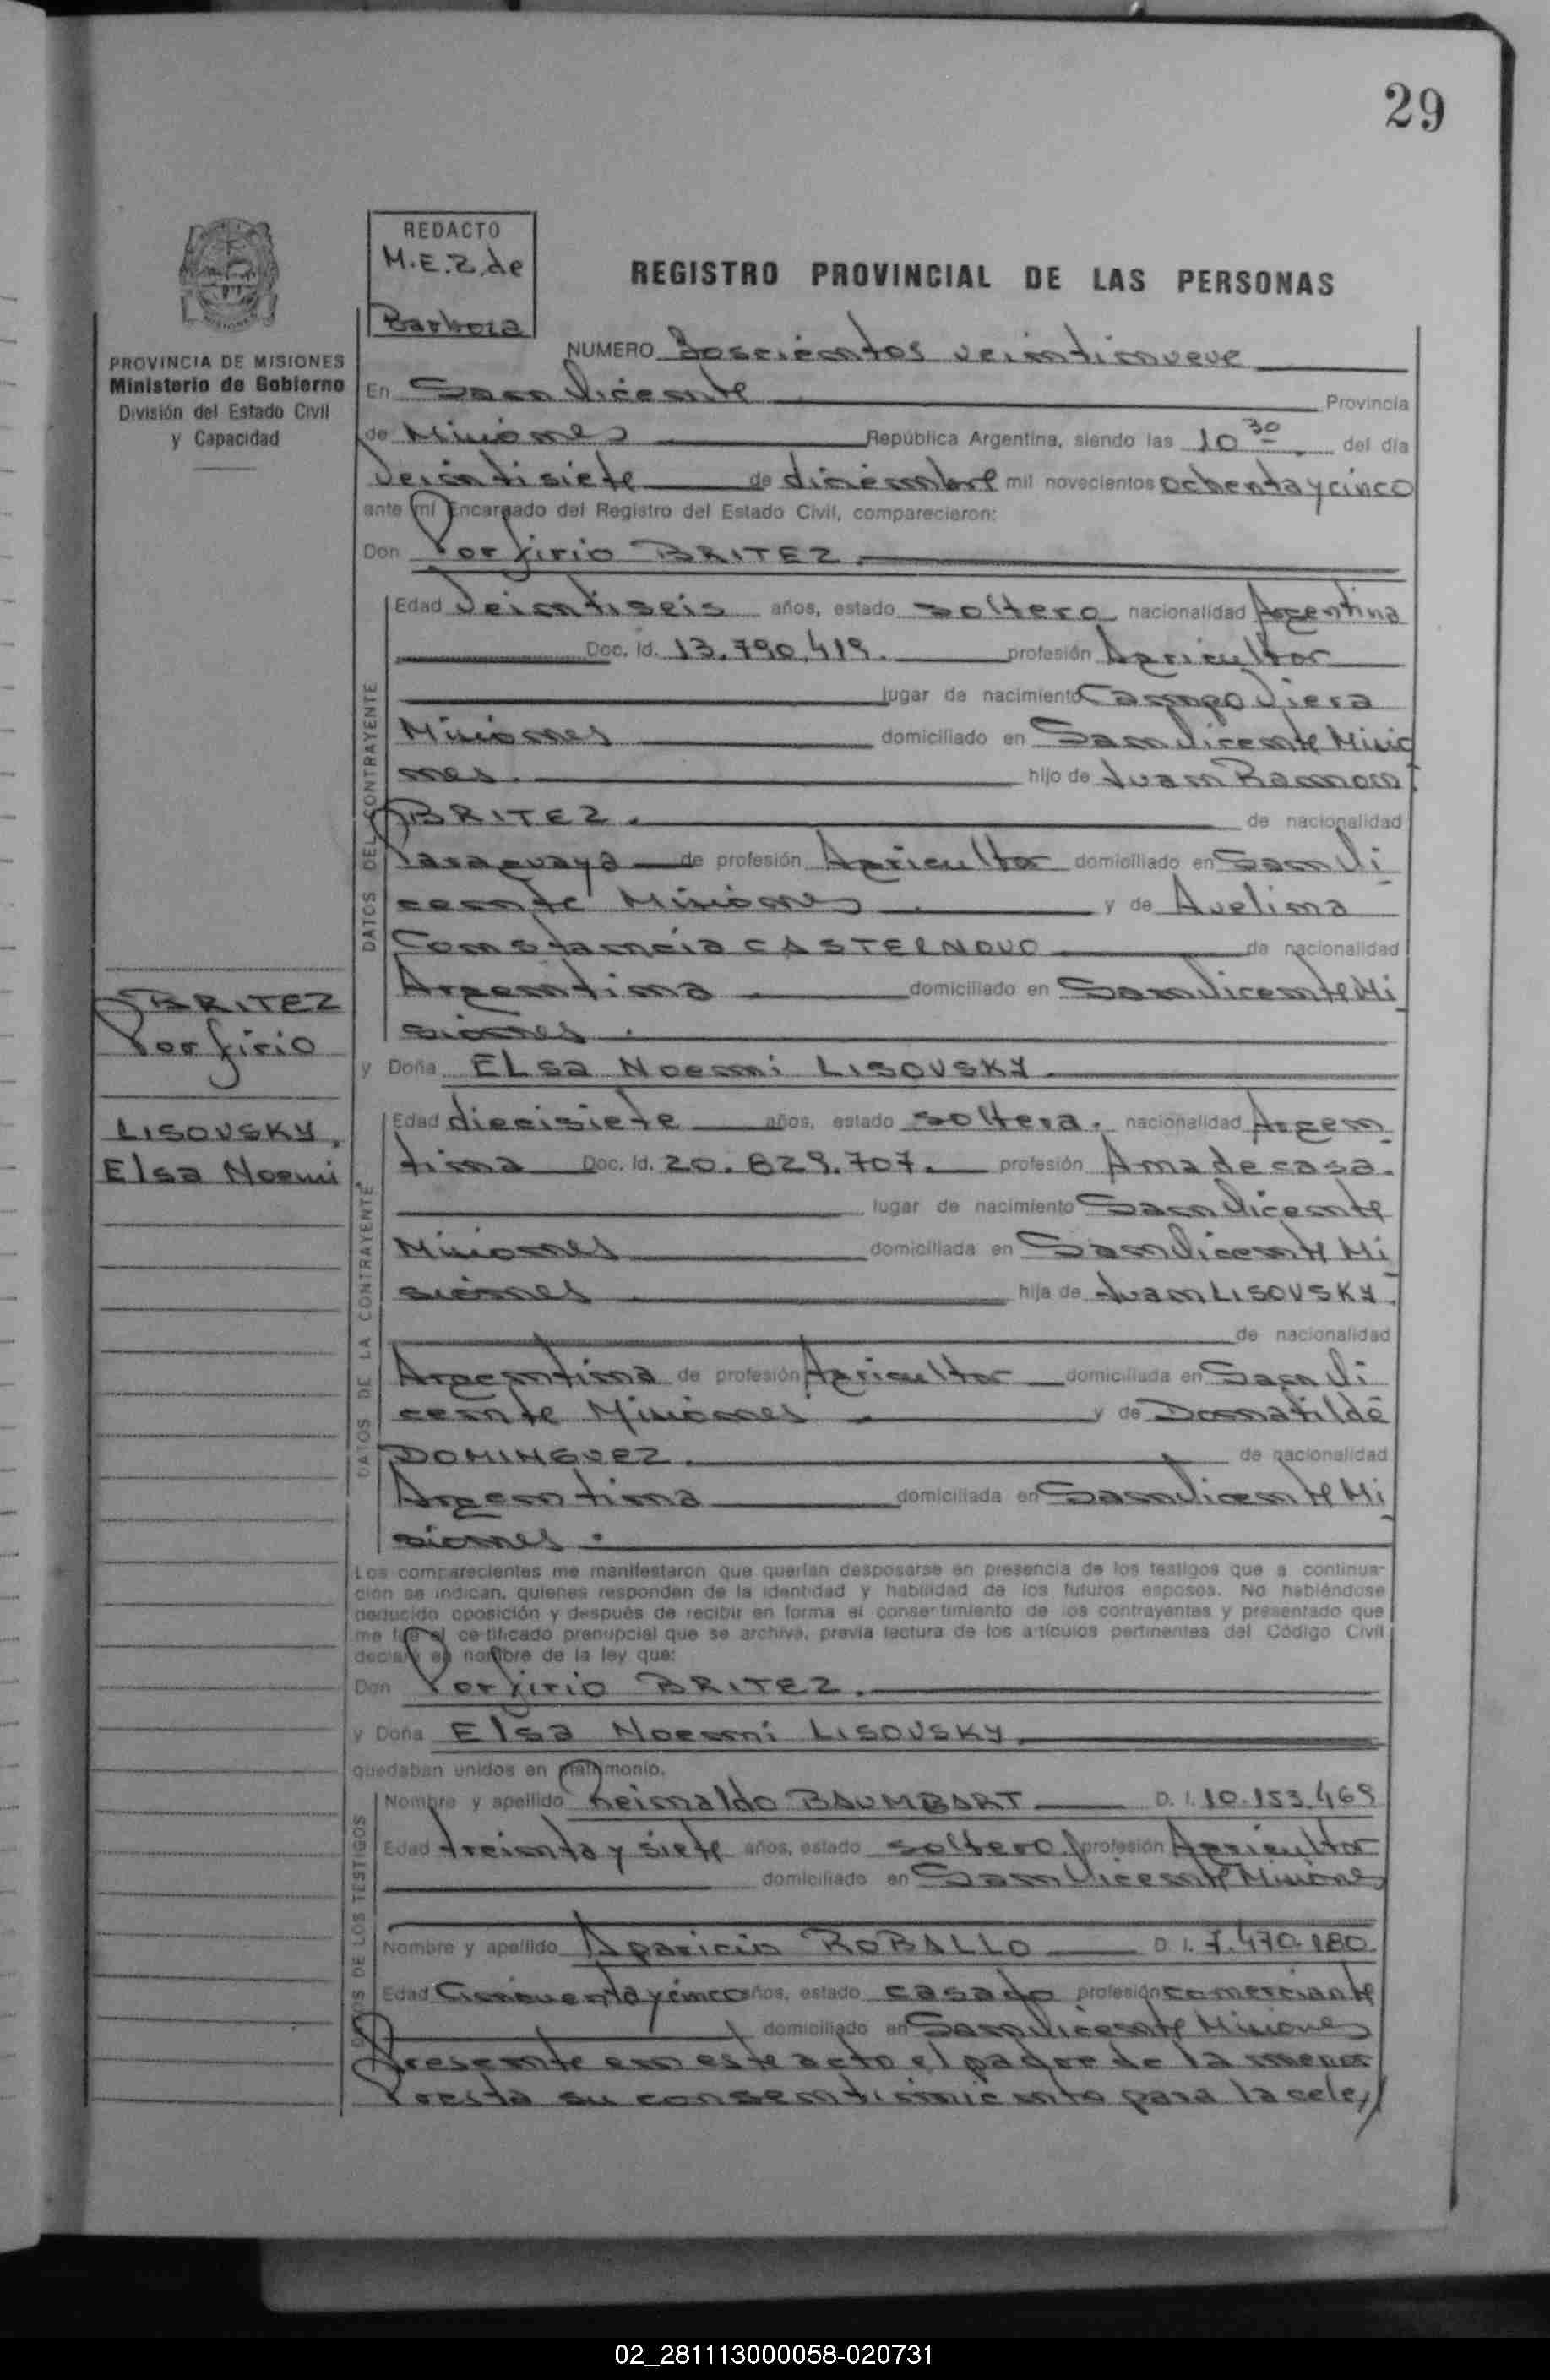 29
REDACTO
M.E.Z. de
Barboza
REGISTRO PROVINCIAL DE LAS PERSONAS
PROVINCIA DE MISIONES
Ministerio de Gobierno
División del Estado Civil
y Capacidad
NUMERO Doscientos veintinueve
En San Vicente Provincia
de Misiones República Argentina, siendo las 10 30 del día
Veintisiete de diciembre mil novecientos ochenta y cinco
ante mí Encargado del Registro del Estado Civil, comparecieron:
Don Porfirio BRITEZ.
DATOS DEL CONTRAYENTE
Edad Veintiseis años, estado soltero nacionalidad Argentina
Doc. Id. 13.790.419. profesión Agricultor
lugar de nacimiento Campo Viera
Misiones domiciliado en San Vicente Misio
nes. hijo de Juan Ramon
BRITEZ. de nacionalidad
Paraguaya de profesión Agricultor domiciliado en San Vi
cente Misiones y de Avelina
Constancia CASTERNOVO de nacionalidad
Argentina domiciliado en San Vicente Mi
siones.
BRITEZ
Porfirio
LISOVSKY,
Elsa Noemi
y Doña ELsa Noemi LISOVSKY.
DATOS DE LA CONTRAYENTE
Edad diecisiete años, estado soltera. nacionalidad Argen
tina Doc. Id. 20.829.707. profesión Ama de casa.
lugar de nacimiento San Vicente
Misiones domiciliada en San Vicente Mi
siones hija de Juan LISOVSKY.
de nacionalidad
Argentina de profesión Agricultor domiciliada en San Vi
cente Misiones y de Donatilde
DOMINGUEZ. de nacionalidad
Argentina domiciliada en San Vicente Mi
siones.
Los comparecientes me manifestaron que querían desposarse en presencia de los testigos que a continua-
ción se indican, quienes responden de la identidad y habilidad de los futuros esposos. No habiéndose
deducido oposición y después de recibir en forma el consertimiento de los contrayentes y presentado que
me fue el certificado prenupcial que se archiva, previa lectura de los artículos pertinentes del Código Civil
declaro en nombre de la ley que:
Don Porfirio BRITEZ.
y Doña Elsa Noemi LISOVSKY.
quedaban unidos en matrimonio.
DATOS DE LOS TESTIGOS
Nombre y apellido Reinaldo BAUMBART D. I. 10.153.469
Edad treinta y siete años, estado soltero profesión Agricultor
domiciliado en San Vicente Misiones
Nombre y apellido Aparicio ROBALLO D. I. 7.470.180.
Edad Cincuenta y cinco años, estado casado profesión comerciante
domiciliado en San Vicente Misiones
Presente en este acto el padre de la menor
Presta su consentimiento para la cele//
02_281113000058-020731